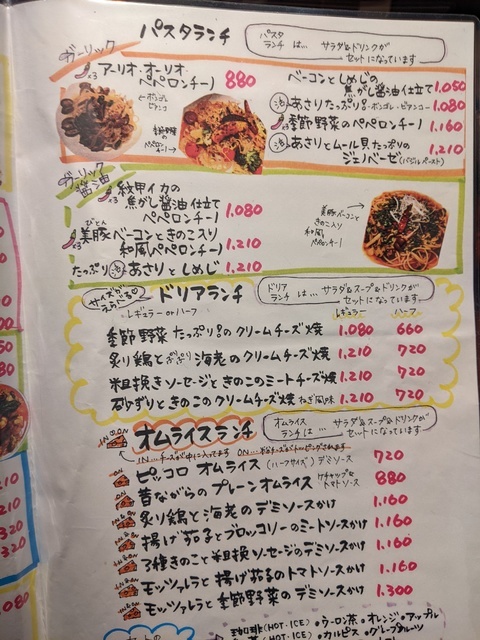 パスタランチ
パスタランチは… サラダ&ドリンクがセットになっています
ガーリック
アーリオ・オーリオ・ペペロンチーノ 880
←ボンゴレビアンコ
季節野菜のペペロンチーノ→
ベーコンとしめじの焦がし醤油仕立て 1,050
あさりたっぷり!!ボンゴレ・ビアンコ 1,080
季節野菜のペペロンチーノ 1,160
あさりとムール貝たっぷりのジェノベーゼ(バジルペースト) 1,210
ガーリック醤油
紋甲イカの焦がし醤油仕立てペペロンチーノ 1,080
美豚ベーコンときのこ入り和風ペペロンチーノ 1,210
たっぷりあさりとしめじ 1,210
美豚ベーコンときのこ入り和風ペペロンチーノ
サイズがえらべる♡
ドリアランチ
ドリアランチは… サラダ&スープ&ドリンクがセットになっています
レギュラー or ハーフ
レギュラー ハーフ
季節野菜たっぷり!!のクリームチーズ焼 1,080 660
炙り鶏と海老のクリームチーズ焼 1,210 720
粗挽きソーセージときのこのミートチーズ焼 1,210 720
砂ずりときのこのクリームチーズ焼 ねぎ風味 1,210 720
オムライスランチ
オムライスランチは… サラダ&スープ&ドリンクがセットになっています
IN…チーズが中に入ってます ON…
ピッコロ オムライス (ハーフサイズ) デミソース 720
昔ながらのプレーンオムライス ケチャップ&トマトソース 880
炙り鶏と海老のデミソースかけ 1,160
揚げ茄子とブロッコリーのミートソースかけ 1,160
3種きのこと粗挽ソーセージのデミソースかけ 1,160
モッツァレラと揚げ茄子のトマトソースかけ 1,160
モッツァレラと季節野菜のデミソースかけ 1,300
珈琲(HOT・ICE)・ウーロン茶・オレンジ・アップル
(HOT・ICE)・カルピス・グレープフルーツ